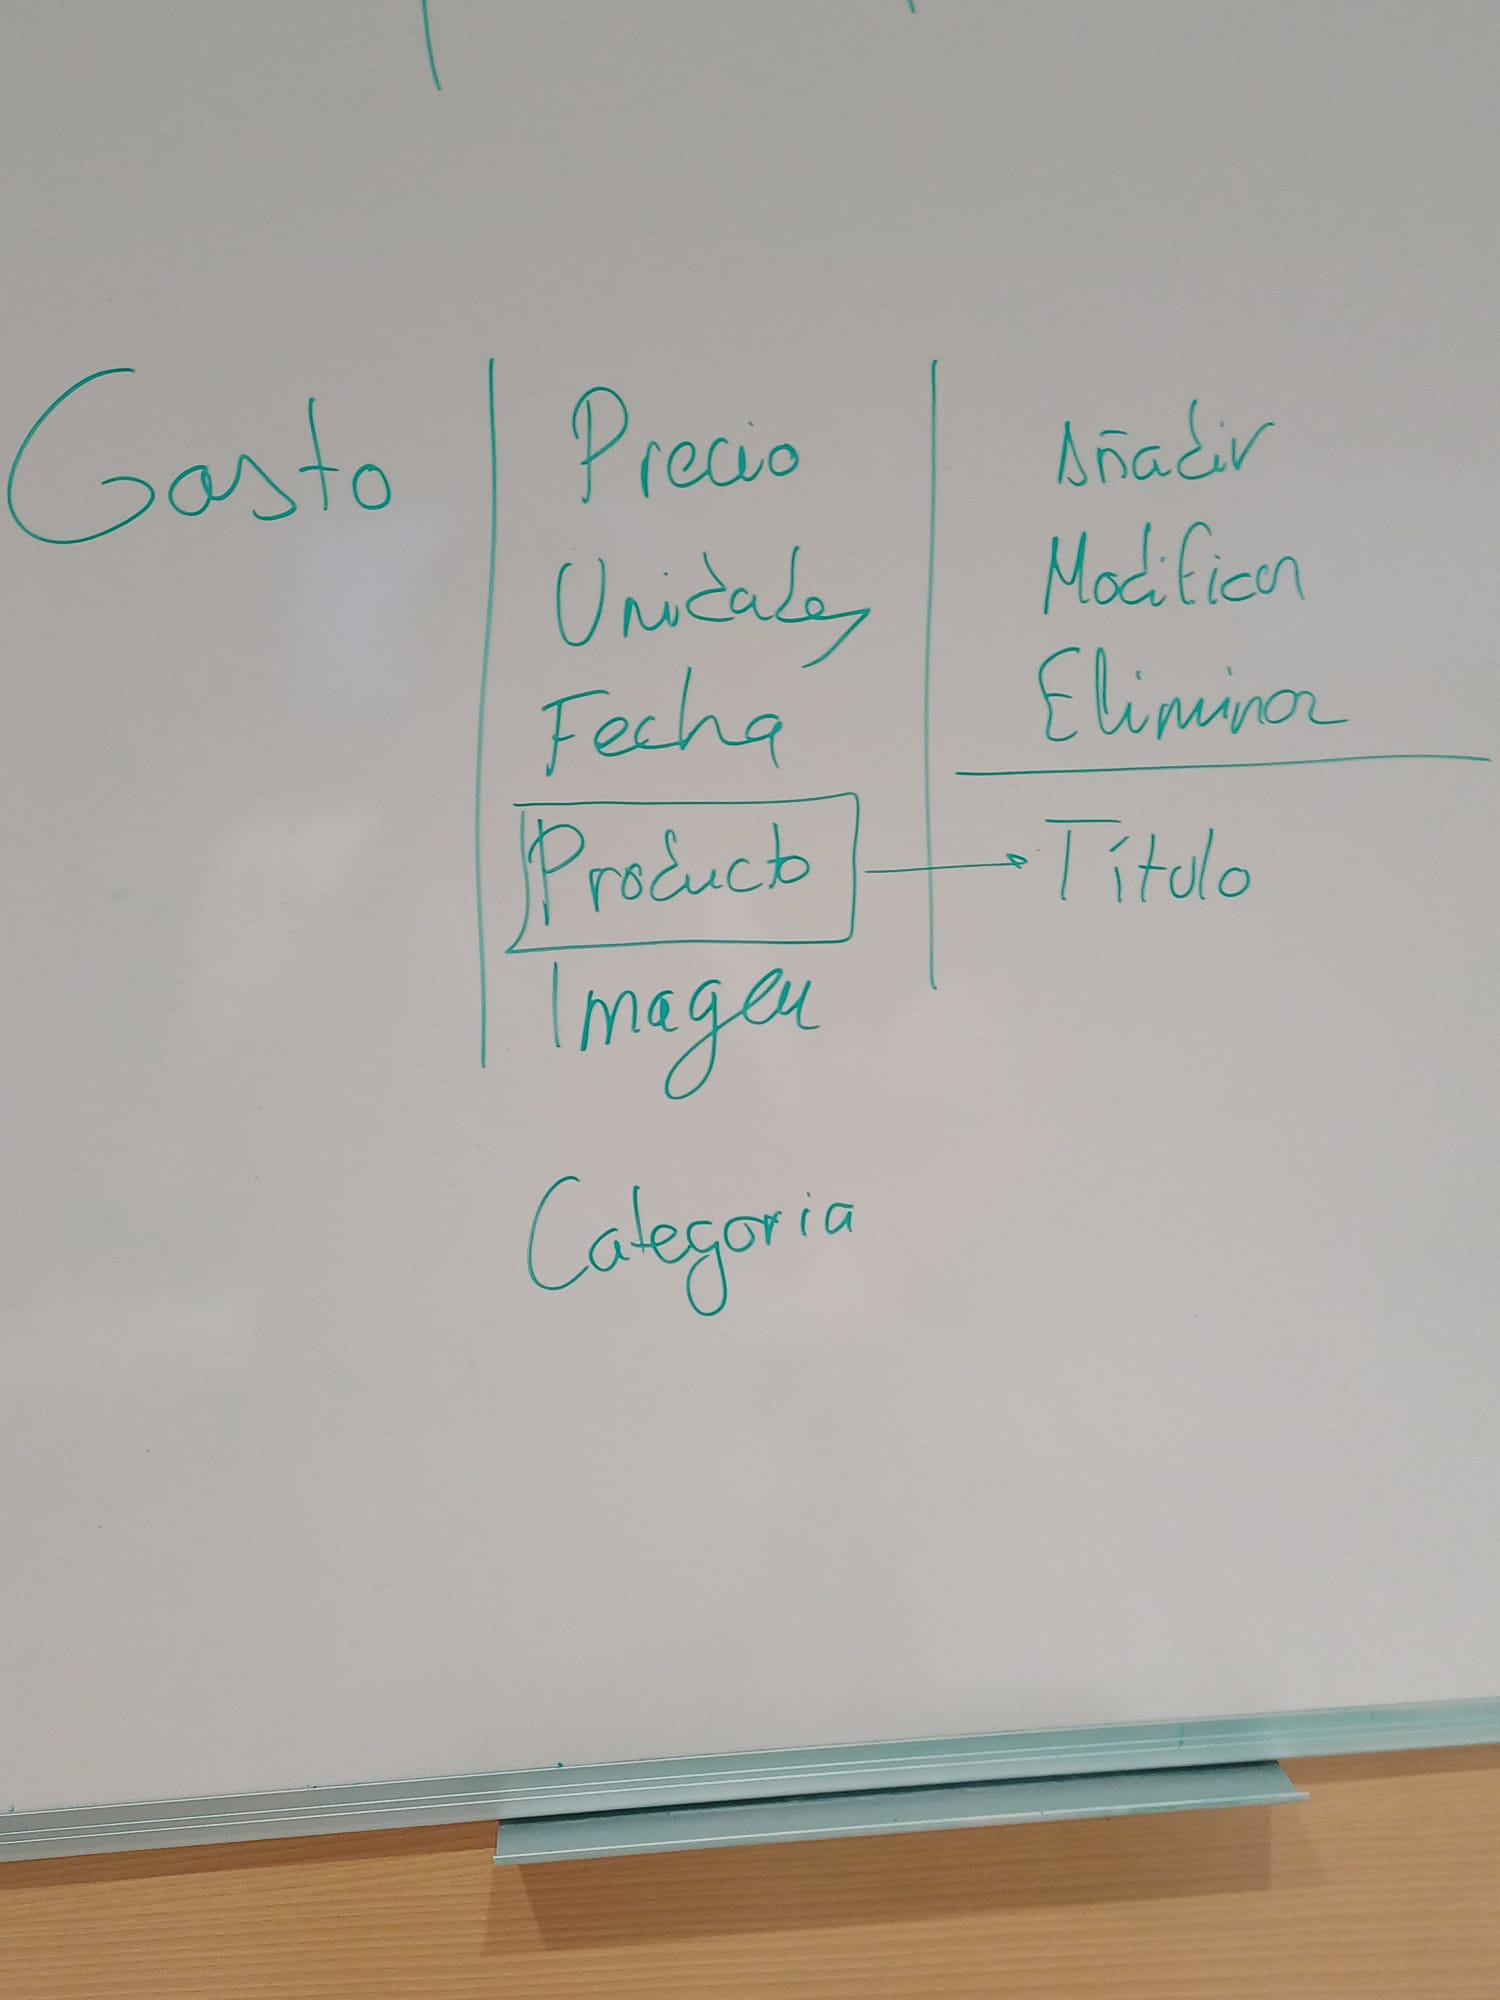 Gasto
Precio
Unidades
Fecha
Producto
Imagen
Categoria
Añadir
Modificar
Eliminar
Título